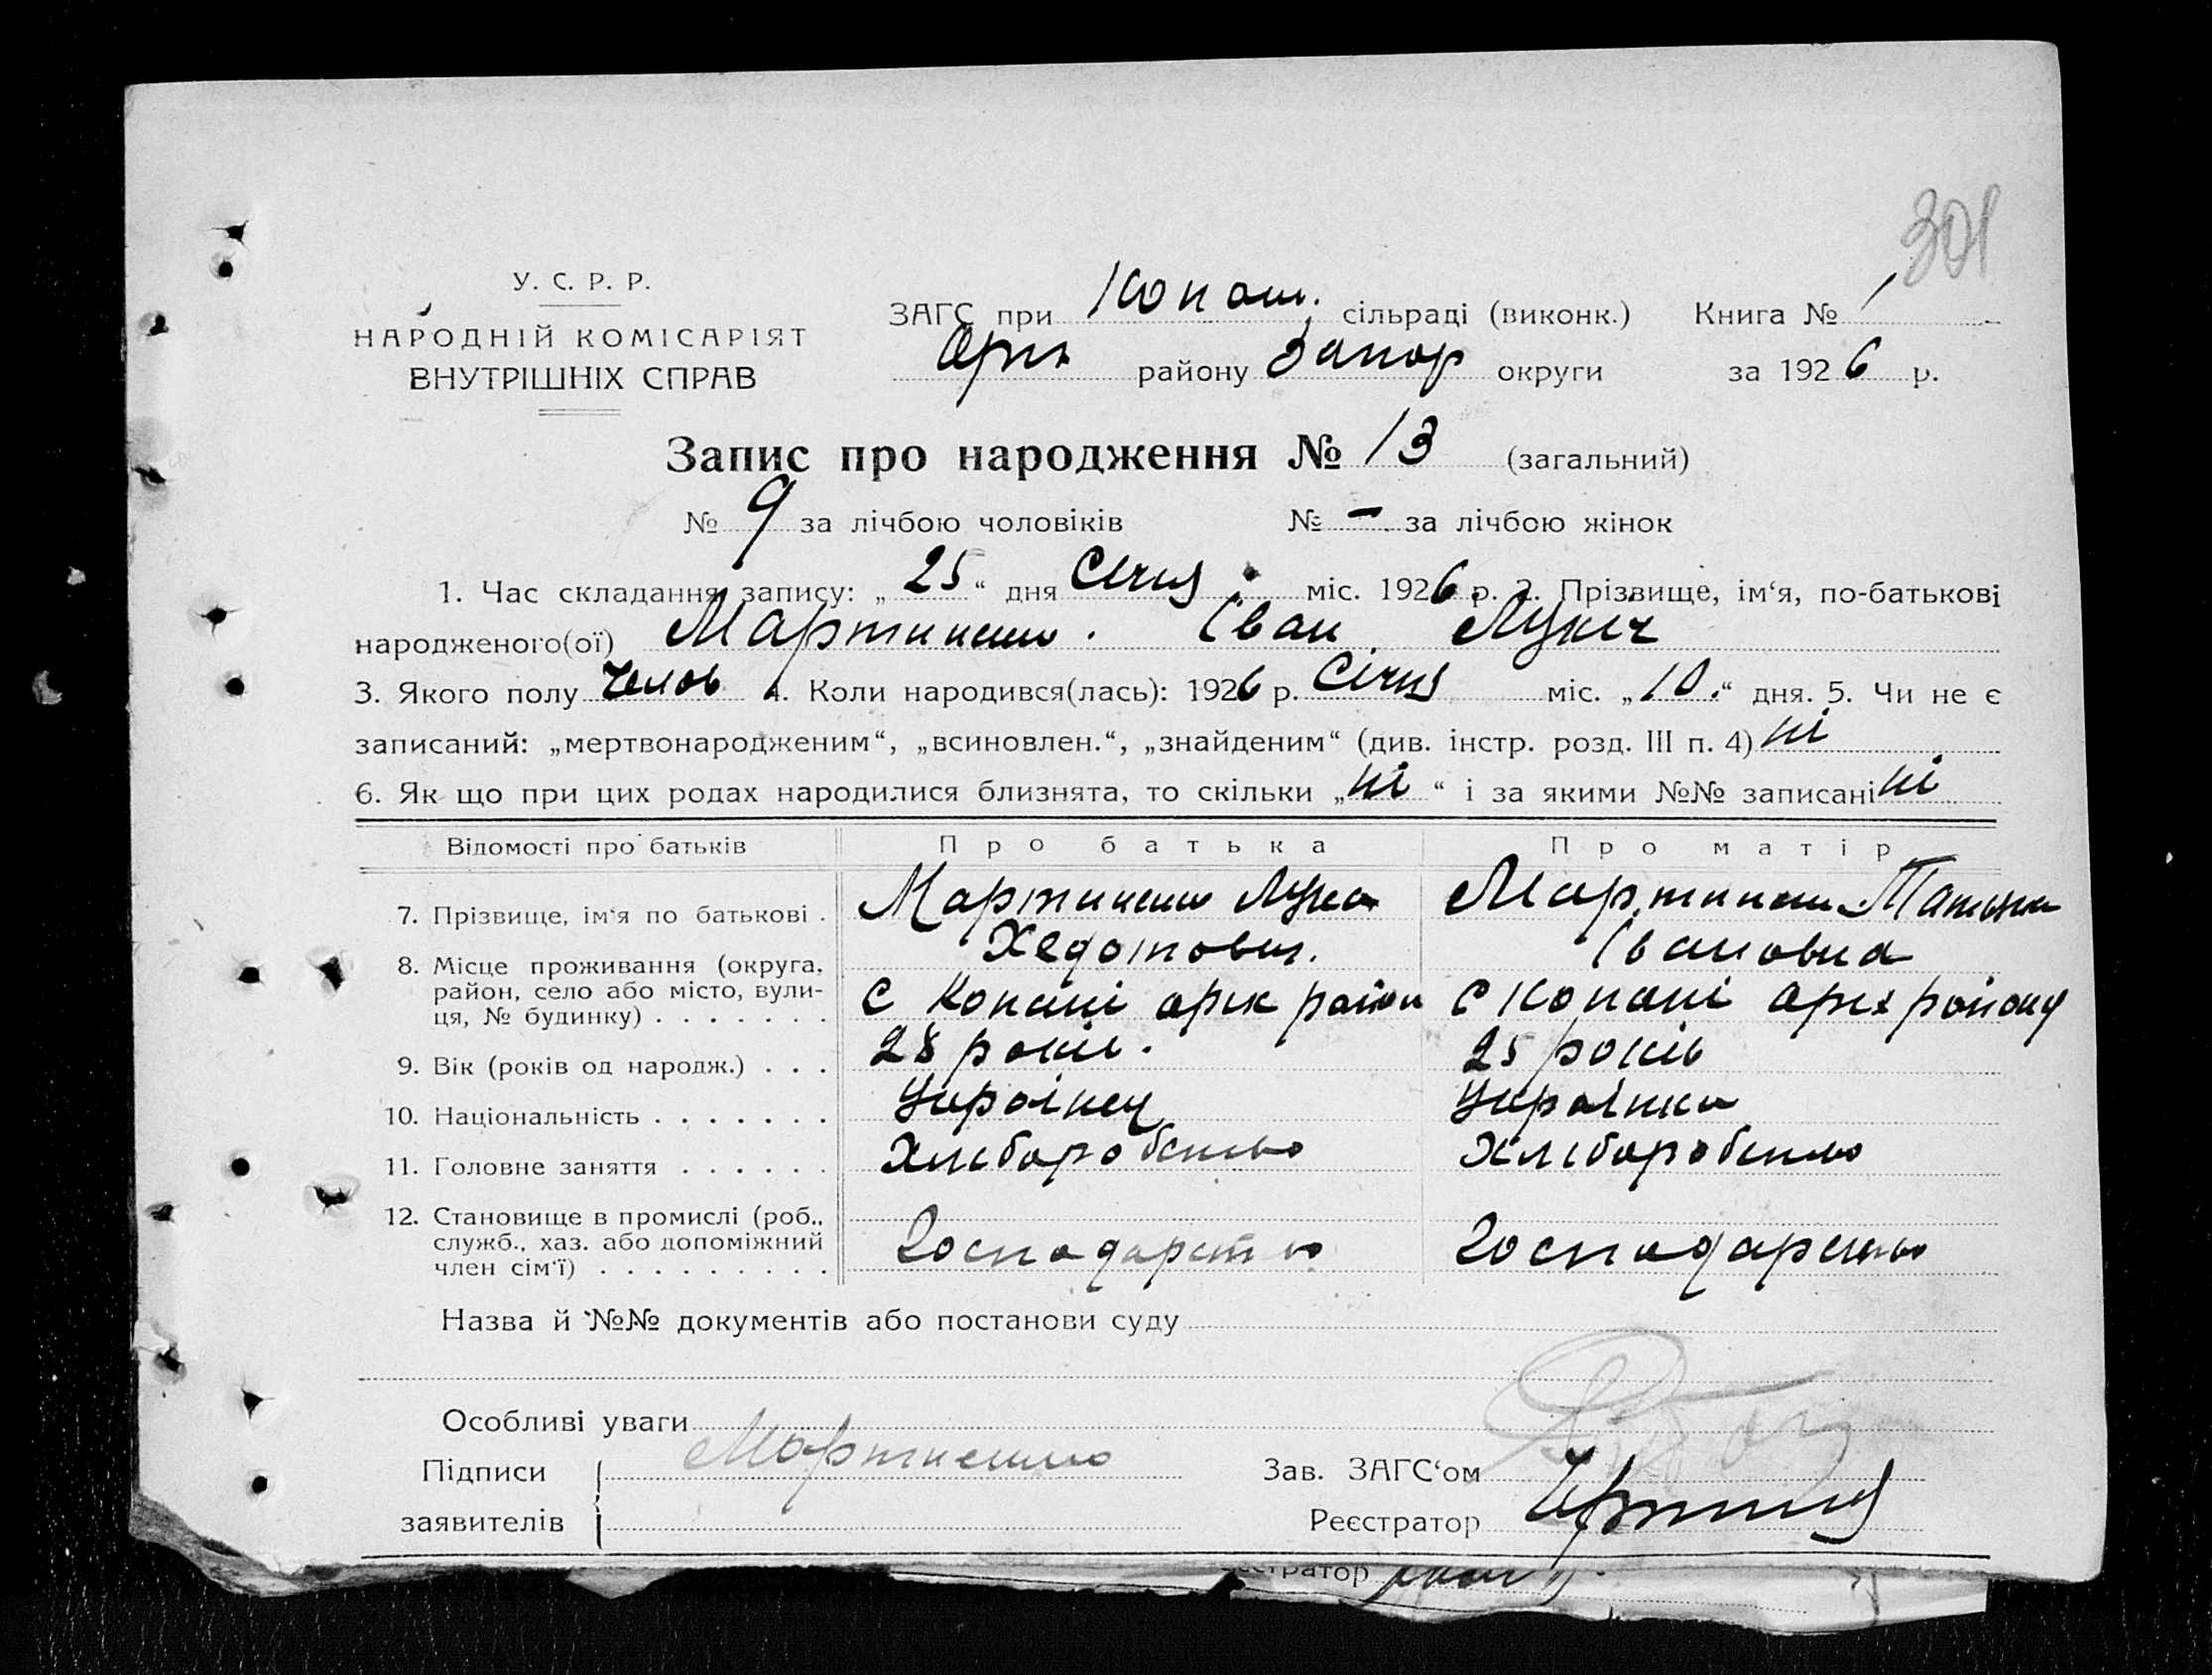 301
У. С. Р. Р.
НАРОДНІЙ КОМІСАРІЯТ
ВНУТРІШНІХ СПРАВ
ЗАГС при Копан. сільраді (виконк.) Книга № 1
Оріх району Запор округи за 1926 р.
Запис про народження № 13 (загальний)
№ 9 за лічбою чоловіків № – за лічбою жінок
1. Час складання запису: „25“ дня Січня міс. 1926 р. 2. Прізвище, ім‘я, по-батькові
народженого(ої) Мартиненко. Іван Лукіч
3. Якого полу Челов 4. Коли народився(лась): 1926 р. Січня міс. „10.“ дня. 5. Чи не є
записаний: „мертвонародженим“, „всиновлен.“, „знайденим“ (див. інстр. розд. III п. 4) ні
6. Як що при цих родах народилися близнята, то скільки „ні“ і за якими №№ записані ні
Відомості про батьків Про батька Про матір
7. Прізвище, ім‘я по батькові . Мартиненко Лука Мартиненко Татьяна
Хедотович. Івановна
8. Місце проживання (округа, район, село або місто, вулиця, № будинку) . . . . . . . с Копані оріх район с Копані оріх району
9. Вік (років од народж.) . . . 28 років. 25 років
10. Національність . . . . . . . Украінец Украінка
11. Головне заняття . . . . . . Хліборобство Хліборобство
12. Становище в промислі (роб., служб., хаз. або допоміжний член сім‘ї) . . . . . . . . . Господарство Господарство
Назва й №№ документів або постанови суду
Особливі уваги
Підписи Мартиненко Зав. ЗАГС‘ом
заявителів Реєстратор